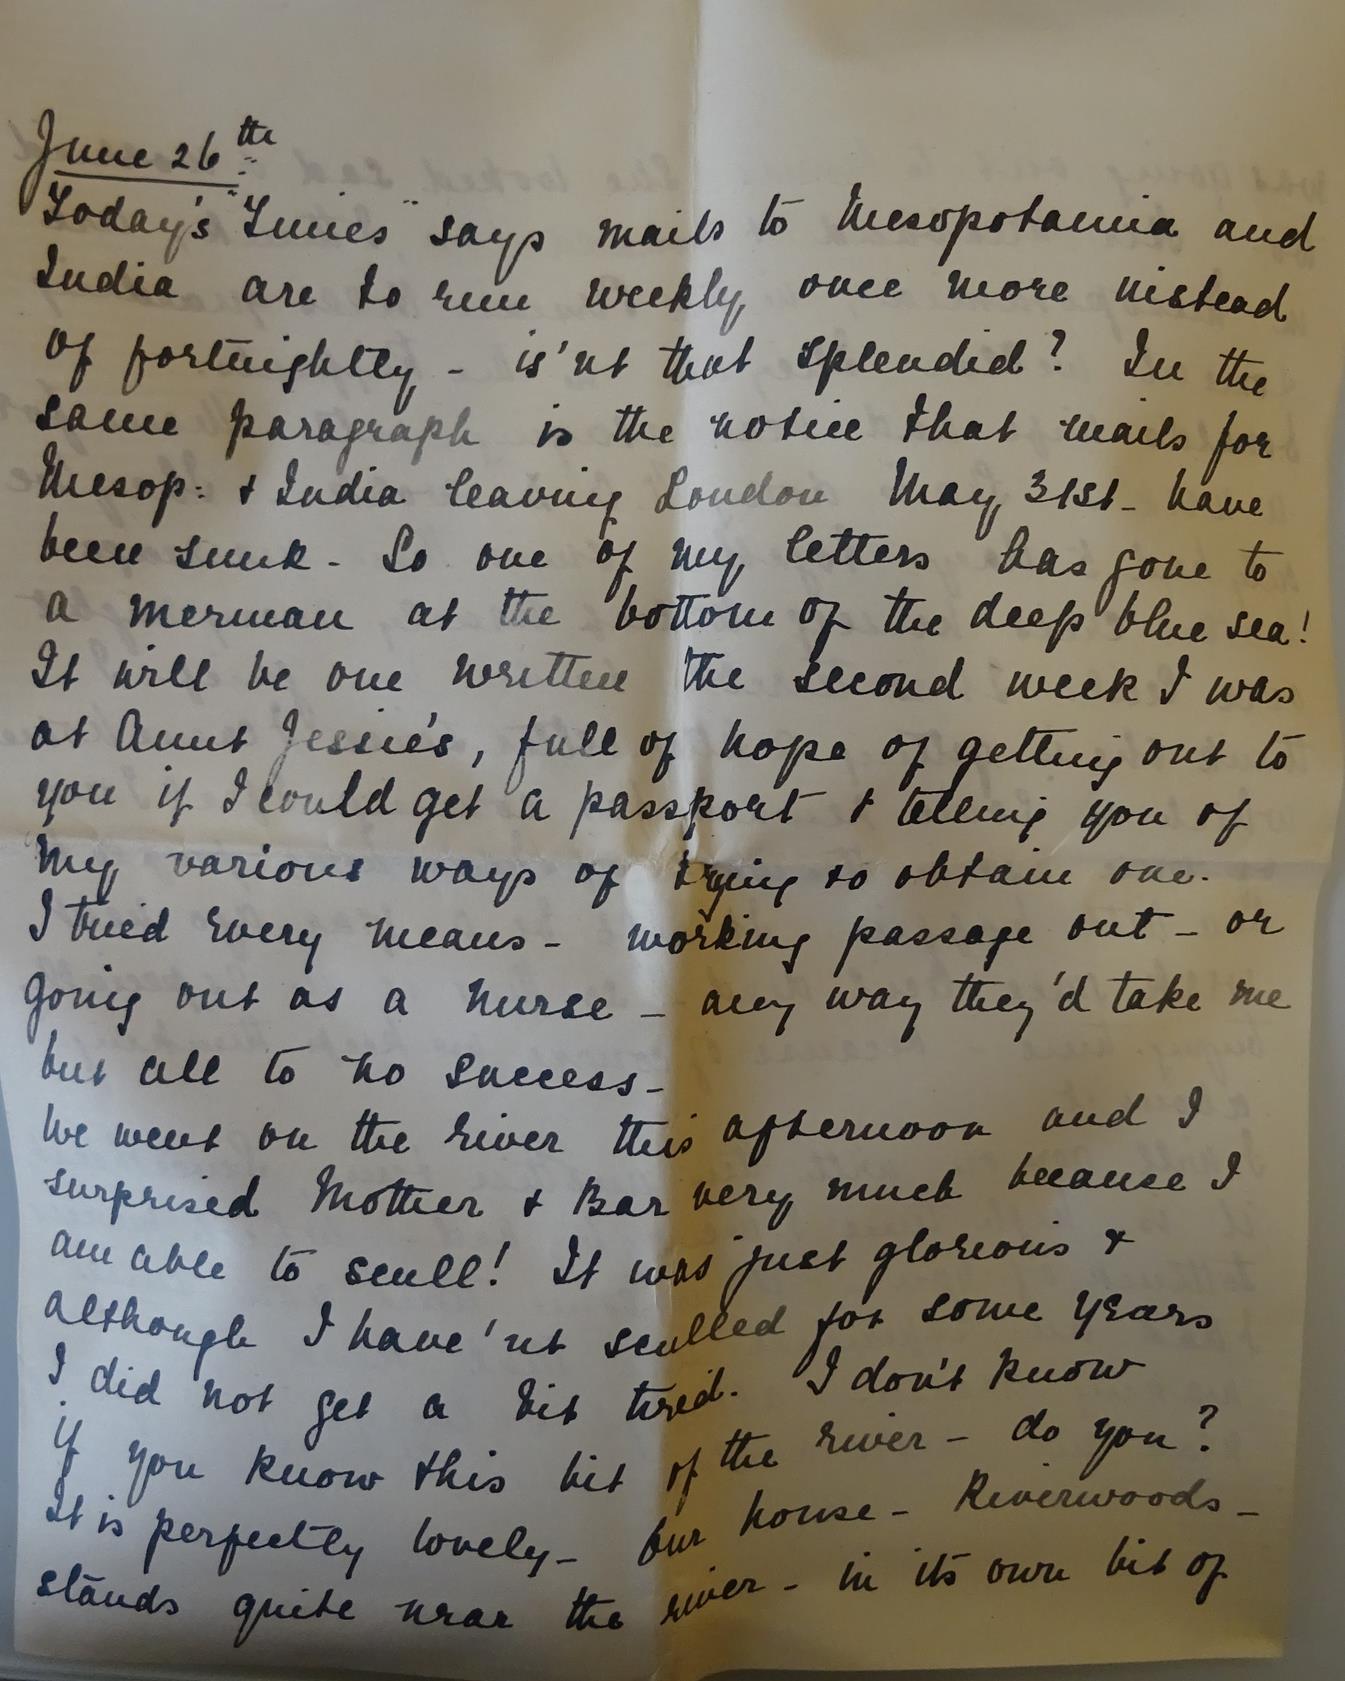 June 26th
Today's "Times" says mails to Mesopotamia and
India are to run weekly once more instead
of fortnightly - is'nt that splendid? In the
same paragraph is the notice that mails for
Mesop: & India leaving London May 31st - have
been sunk - So one of my letters has gone to
a merman at the bottom of the deep blue sea!
It will be one written the second week I was
at Aunt Jessie's, full of hope of getting out to
you if I could get a passport & telling you of
my various ways of trying to obtain one.
I tried every means - working passage out - or
going out as a nurse - any way they'd take me
but all to no success -
We went on the river this afternoon and I
surprised Mother & Bar very much because I
am able to scull! It was just glorious &
although I have'nt sculled for some years
I did not get a bit tired. I don't know
if you know this bit of the river - do you?
It is perfectly lovely - Our house - Riverwoods -
stands quite near the river - in its own bit of